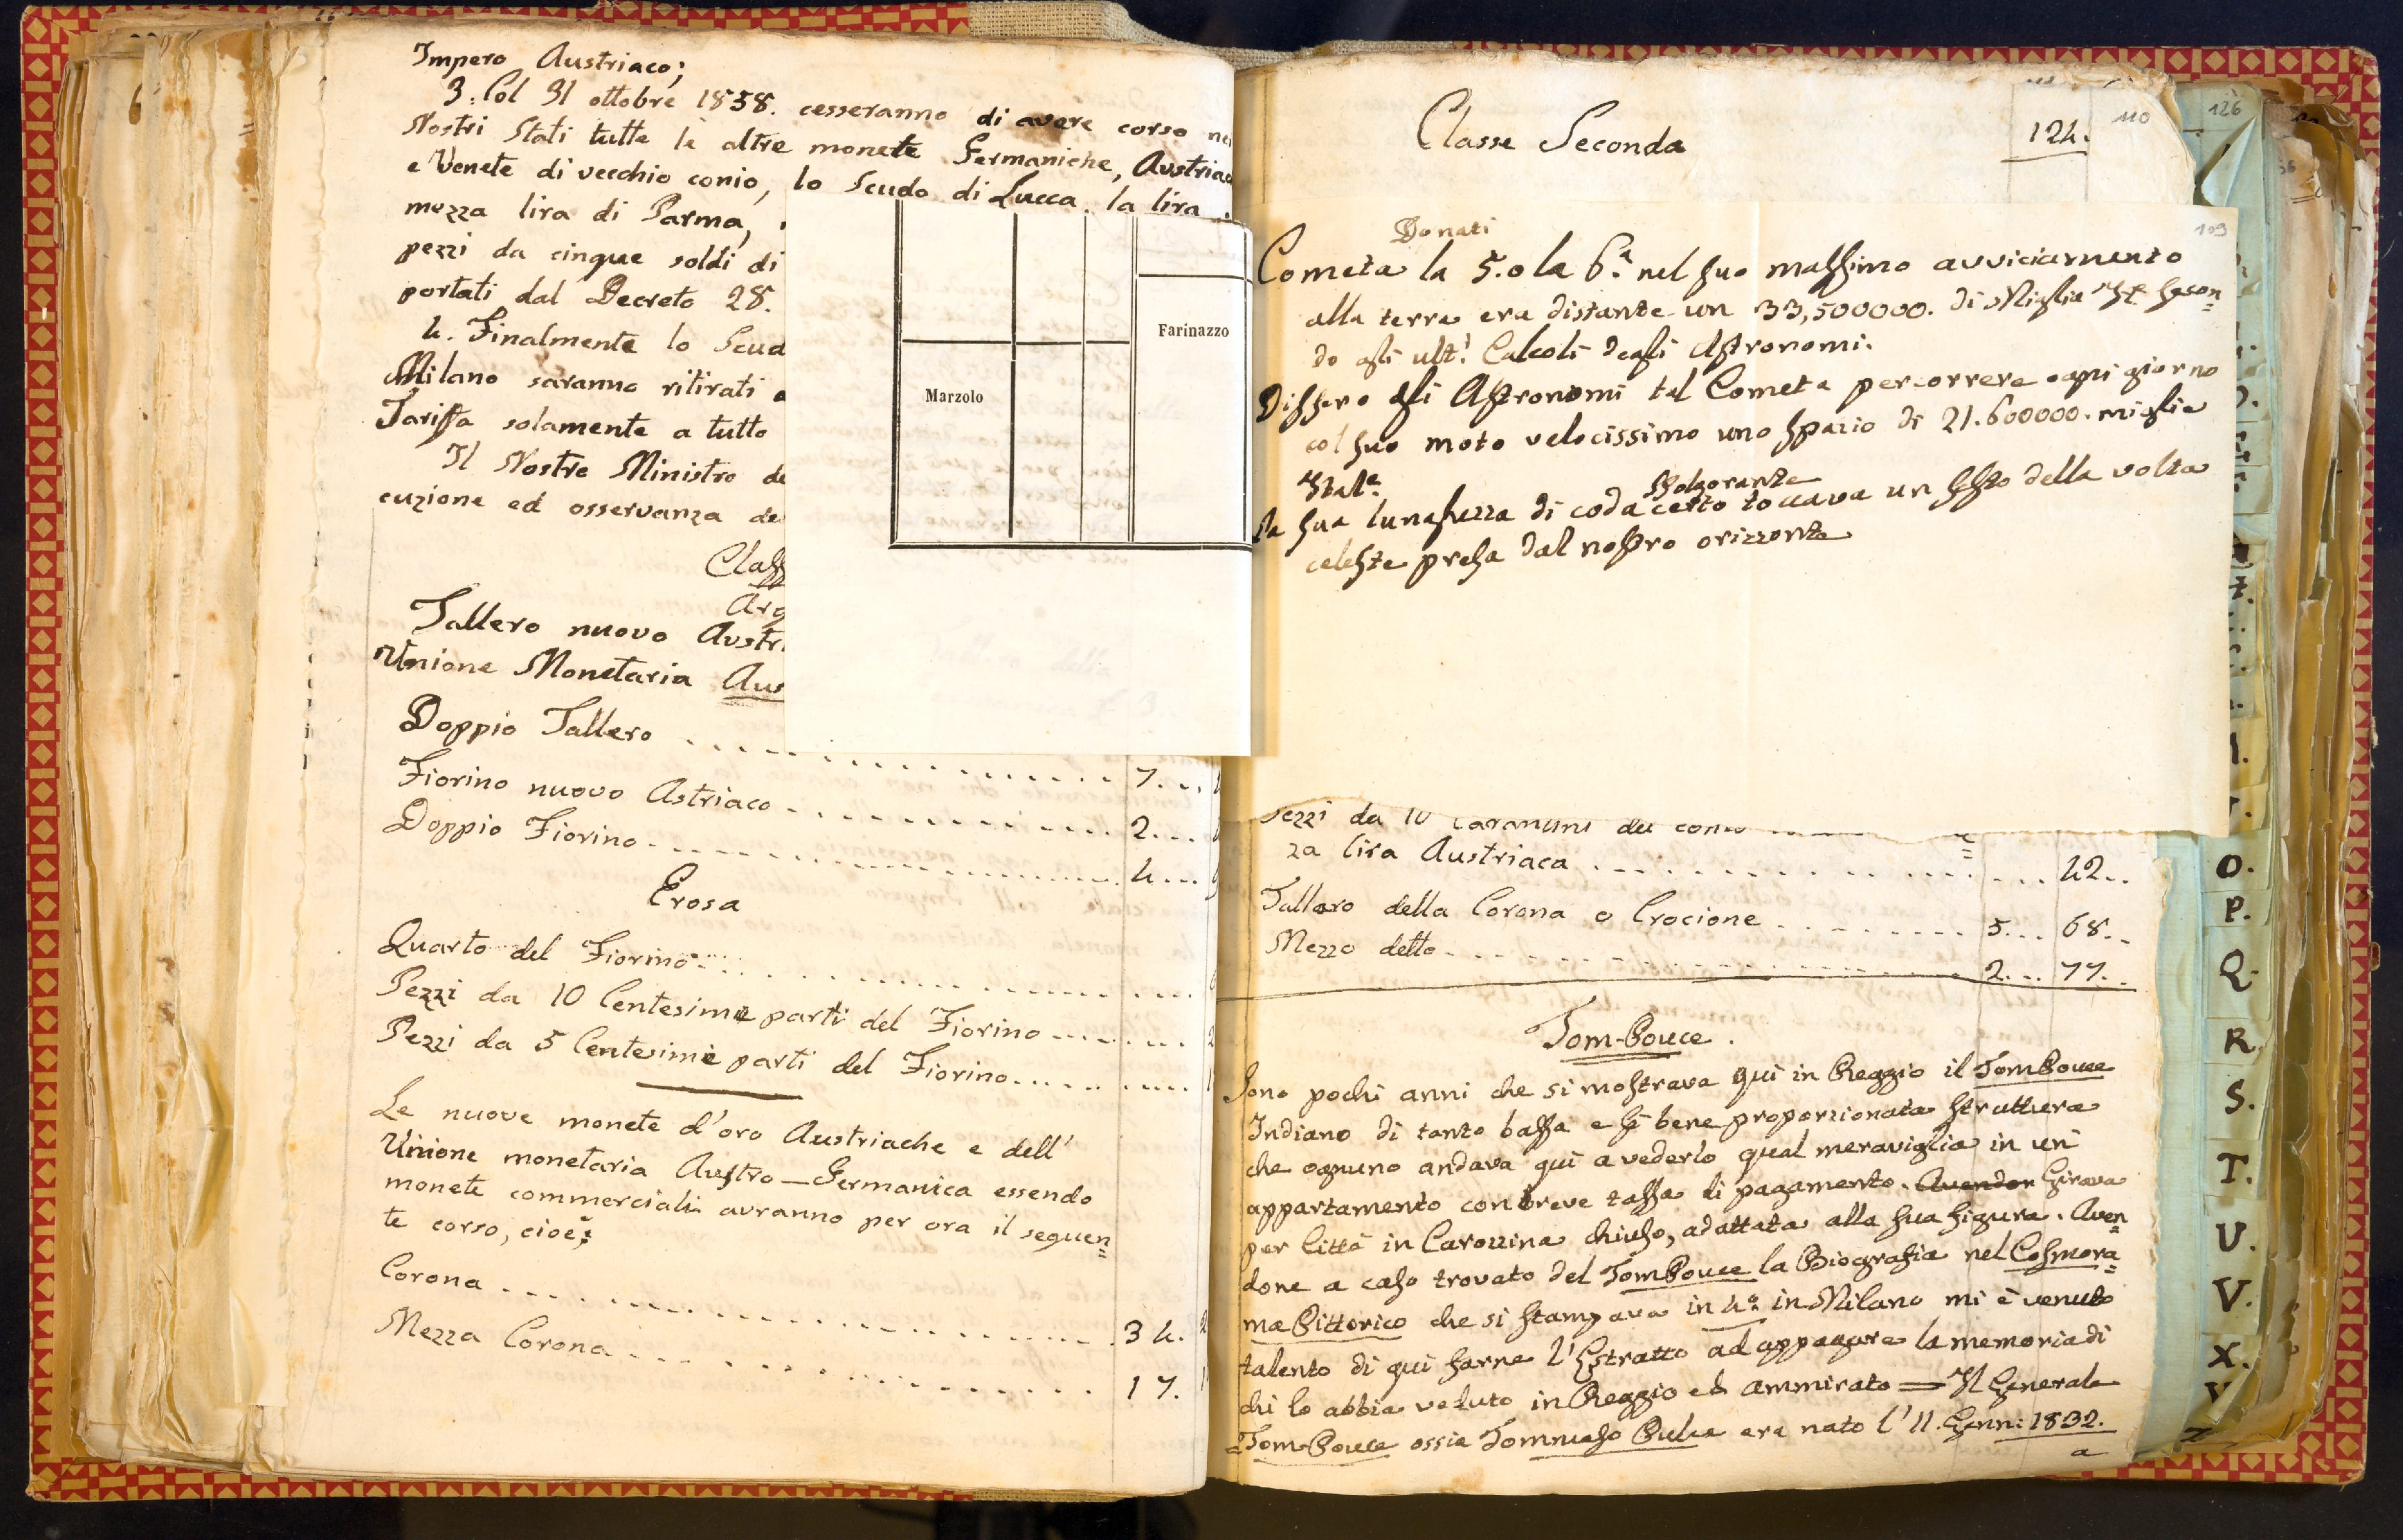 Impero Austriaco;
3. Col 31 ottobre 1858. cesseranno di avere corso nei
Nostri Stati tutte le altre monete Germaniche, Austriac
e Venete di vecchio conio, lo Scudo di Lucca, la lira
mezza lira di Parma,
pezzi da cinque soldi di
portati dal Decreto 28.
4. Finalmente lo Scud
Milano saranno ritirati a
Tariffa solamente a tutto
Il Nostro Ministro de
cuzione ed osservanza de
Class
Arg
Tallero nuovo Austri
Unione Monetaria Aus
Doppio Tallero . . . 7. . .
Fiorino nuovo Astriaco . . . 2. . .
Doppio Fiorino . . . 4. . .
Erosa
Quarto del Fiorino . . .
Pezzi da 10 Centesime parti del Fiorino . . . 2
Pezzi da 5 Centesime parti del Fiorino . . . 1
Le nuove monete d'oro Austriache e dell'
Unione monetaria Austro-Germanica essendo
monete commerciali avranno per ora il seguen=
te corso, cioè;
Corona . . . 34.
Mezza Corona . . . 17.
Marzolo
Farinazzo
110
126
Classe Seconda 124.
109
Donati
Cometa la 5.a o la 6.a nel suo massimo avviciamento
alla terra era distante un 33,500000. di Miglia It. secon=
do gli ult.i Calcoli degli Astronomi.
Dissero gli Astronomi tal Cometa percorrere ogni giorno
col suo moto velocissimo uno spazio di 21.600000. miglia
Ital.e
sfolgorante
La sua lunghezza di coda certo toccava un sesto della volta
celeste presa dal nostro orizzonte
Pezzi da 10 Carantani del conio
za lira Austriaca . . . 42..
Tallaro della Corona o Crocione . . . 5... 68..
Mezzo detto . . . 2... 77..
Tom-Pouce.
Sono pochi anni che si mostrava quì in Reggio il Tom Pouce
Indiano di tanto bassa e sì bene proporzionata struttura
che ognuno andava quì a vederlo qual meraviglia in un
appartamento con breve tassa di pagamento. Avendon Girava
per Città in Carozzina chiuso, adattata alla sua figura. Aven=
done a caso trovato del Tom Pouce la Biografia nel Cosmora=
ma Pittorico che si stampava in 4.o in Milano mi è venuto
talento di quì farne l'Estratto ad appagare la memoria di
chi lo abbia veduto in Reggio ed ammirato = Il Generale
=Tom-Pouce ossia Tommaso Pulce era nato l'11. Genn: 1832.
a
O.
P.
Q.
R.
S.
T.
U.
V.
X.
Y
Z